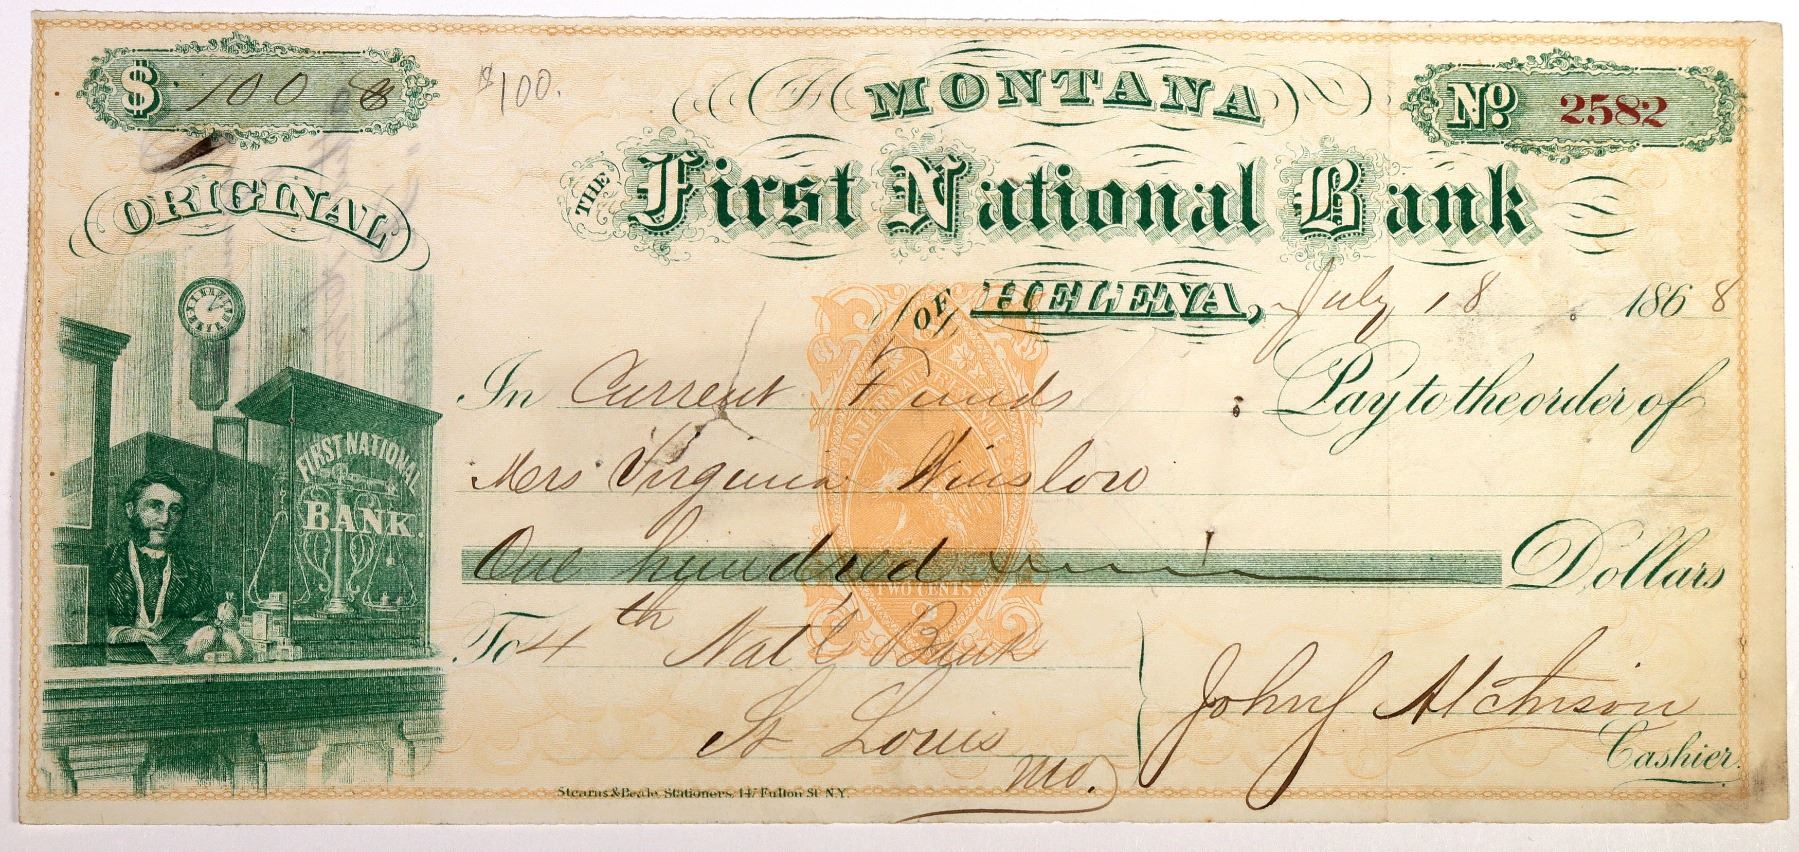 $ 100
$100.
MONTANA
No 2582
ORIGINAL
THE First National Bank
OF HELENA, July 18 1868
In Current Funds : Pay to the order of
Mrs Virginia Winslow
One hundred Dollars
To 4th Nat'l Bank
St Louis
Mo.
John J Atchison
Cashier.
FIRST NATIONAL
BANK.
INTERNAL REVENUE
TWO CENTS
Stearns & Beale, Stationers, 147 Fulton St. N.Y.